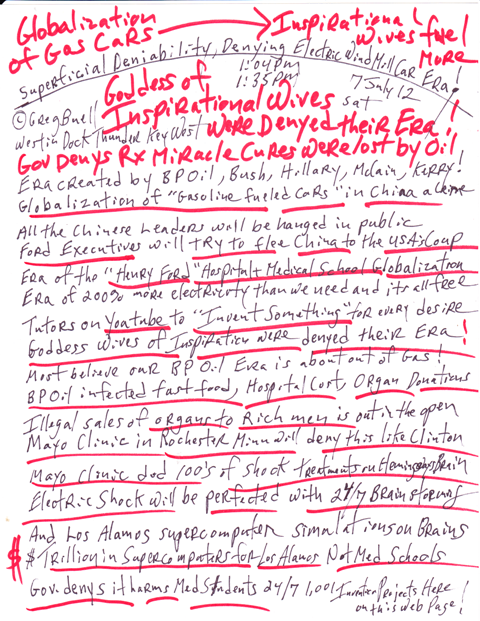 Globalization of Gas Cars → Inspirational Wives fuel More
Superficial Deniability, Denying Electric WindMill Car Era!
1:04pm
1:35pm
7 July 12
Sat
Goddess of
Inspirational Wives
© Greg Buell
Westin Dock Thunder Key West
Were Denyed their Era!
Gov Denys Rx Miracle Cures Were lost by Oil
Era created by BP Oil, Bush, Hillary, McCain, Kerry!
Globalization of "Gasoline fueled Cars" in China a Crime
All the Chinese Leaders will be hanged in public
Ford Executives will try to flee China to the USA's Coup
Era of the "Henry Ford" Hospital + Medical School Globalization
Era of 200% more electricity than we need and its all free
Tutors on Youtube to "Invent Something" for every desire
Goddess Wives of Inspiration were denyed their Era!
Most believe our BP Oil Era is about out of Gas!
BP Oil infected fast food, Hospital Cost, Organ Donations
Illegal sales of organs to Rich men is out in the open
Mayo Clinic in Rochester Minn will deny this like Clinton
Mayo Clinic did 100's of shock treatments on Hemingways Brain
Electric Shock will be perfected with 24/7 Brainstorming
And Los Alamos supercomputer simulations on Brains
$ $ Trillion in Supercomputers for Los Alamos Not Med Schools
Gov. denys it harms Med Students 24/7 1,001 Invention Projects Here
on this web Page!